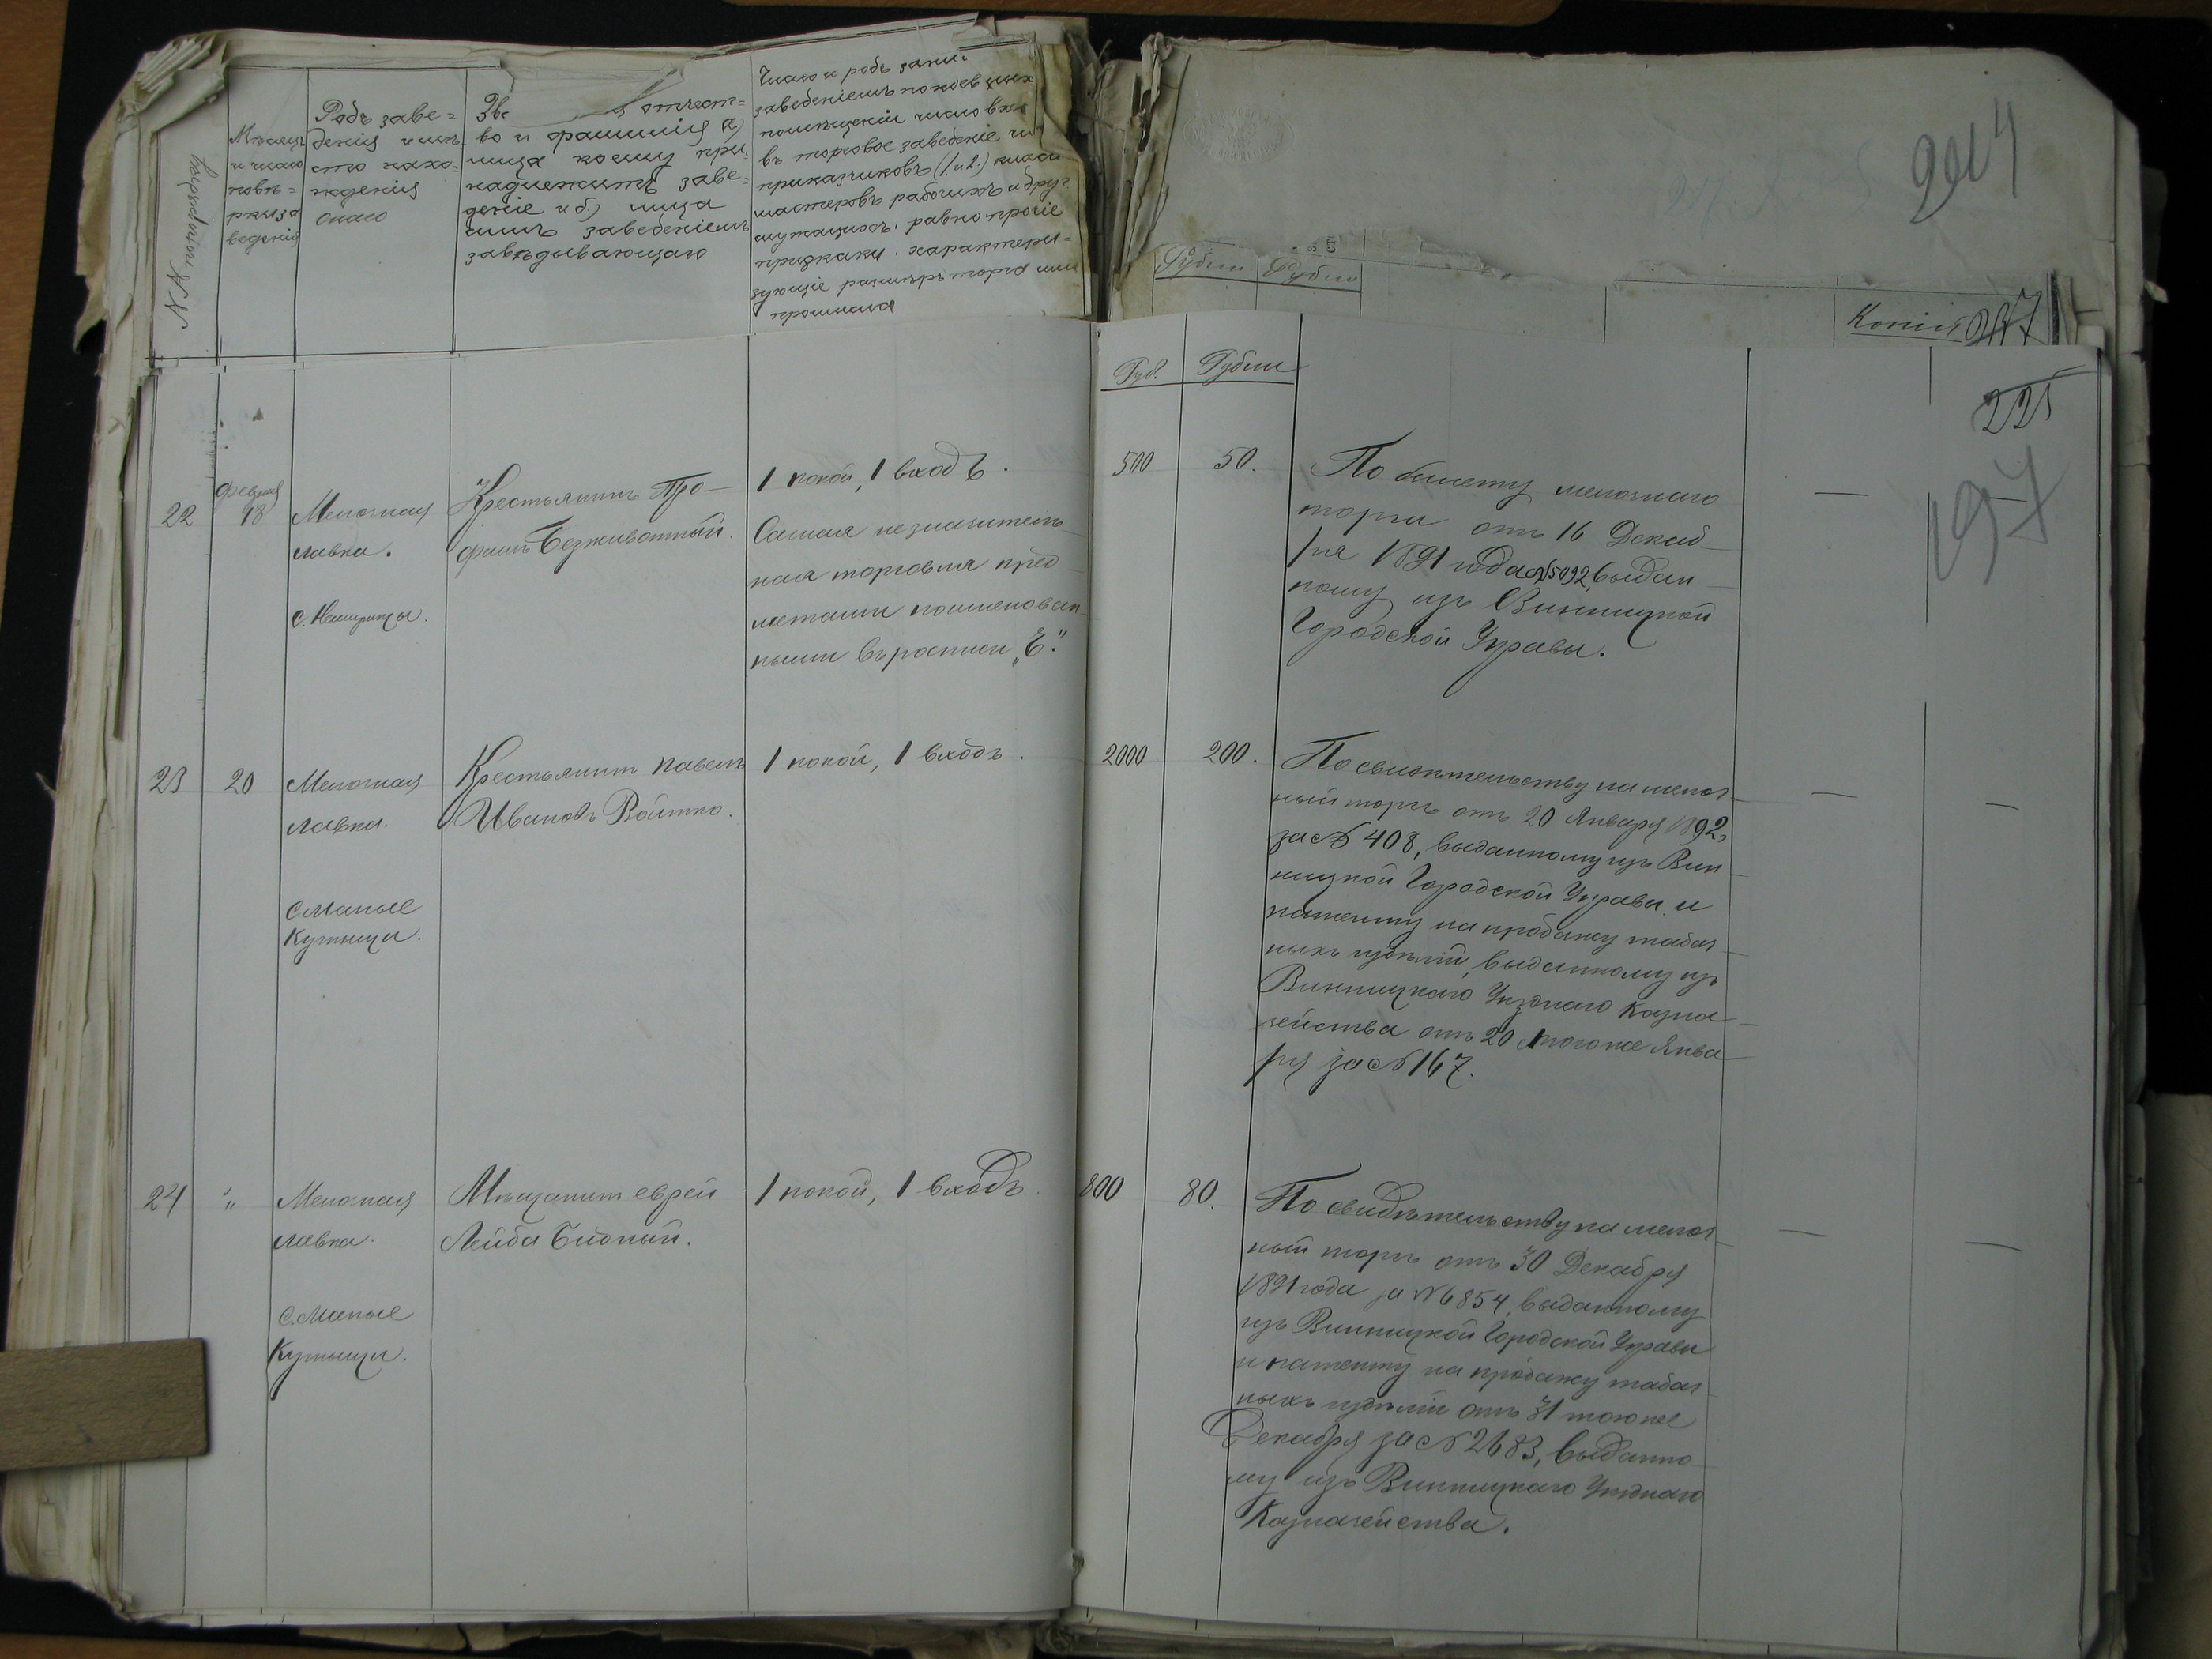 №№ по порядку
Мѣсяцъ
и число
повѣ=
рки за
веденія
Родъ заве=
денія и мѣ
сто нахо=
жденія
онаго
Зв отчест=
во и фамилія а)
лица коему при
надлежитъ заве=
деніе и б) лица
симъ заведеніемъ
завѣдывающаго
Число и родъ зани
заведеніемъ покоевъ
помѣщеніи число вх
въ торговое заведеніе чи
приказчиковъ (1 и 2.) класс
мастеровъ рабочихъ и друг
служащихъ, равно прочіе
признаки характери=
зующіе размѣръ торга или
промысла
Рубли
Рубли
Копія
Руб.
Рубли
225
197
22
Февраля
18
Мелочная
лавка.
Крестьянинъ Тро-
фимъ Безживотный.
1 покой, 1 входъ.
Самая незначитель
ная торговля пред
метами поименован
ными въ росписи „Е."
500
50.
По билету мелочнаго
торга отъ 16 Декаб
ря 1891 года №5092, выдан
ному изъ Винницкой
Городской Управы.
—
23
20
Мелочная
лавка.
с. Малые
Кутыщи.
Крестьянинъ Павелъ
Ивановъ Войтко.
1 покой, 1 входъ.
2000
200.
По свидѣтельству на мелоч
ный торгъ отъ 20 Января 1892,
за № 408, выданному изъ Вин
ницкой Городской Управы и
патенту на продажу табач
ныхъ издѣлій, выданному изъ
Винницкаго Уѣзднаго Казна
чейства отъ 20 того же Янва
ря за № 167.
—
—
24
"
Мелочная
лавка.
с. Малые
Кутыщи.
Мѣщанинъ еврей
Лейба Бидный.
1 покой, 1 входъ.
800
80.
По свидѣтельству на мелоч
ный торгъ отъ 30 Декабря
1891 года за №6854, выданному
изъ Винницкой Городской Управы
и патенту на продажу табач
ныхъ издѣлій отъ 31 того же
Декабря за № 2683, выданно
му изъ Винницкаго Уѣзднаго
Казначейства.
—
—